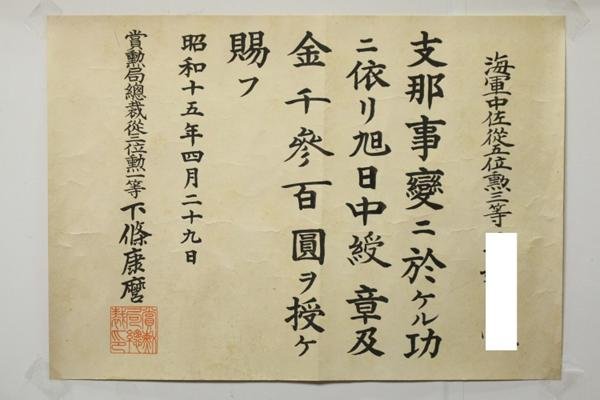 海軍中佐從五位勲三等
支那事變ニ於ケル功
ニ依リ旭日中綬章及
金千參百圓ヲ授ケ
賜フ
昭和十五年四月二十九日
賞勲局總裁從三位勲一等下條康麿
賞勲
局總
裁印